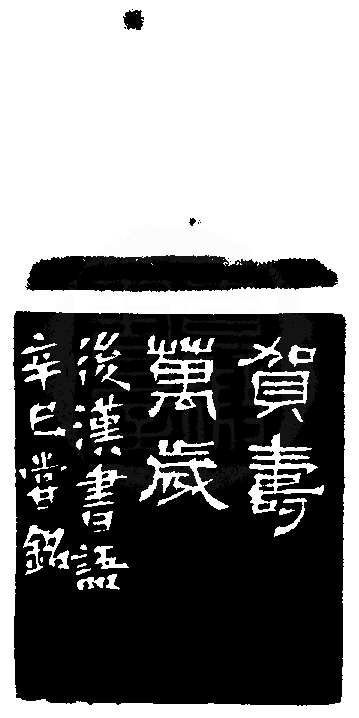 賀壽
萬歲
後漢書語
辛巳 銘